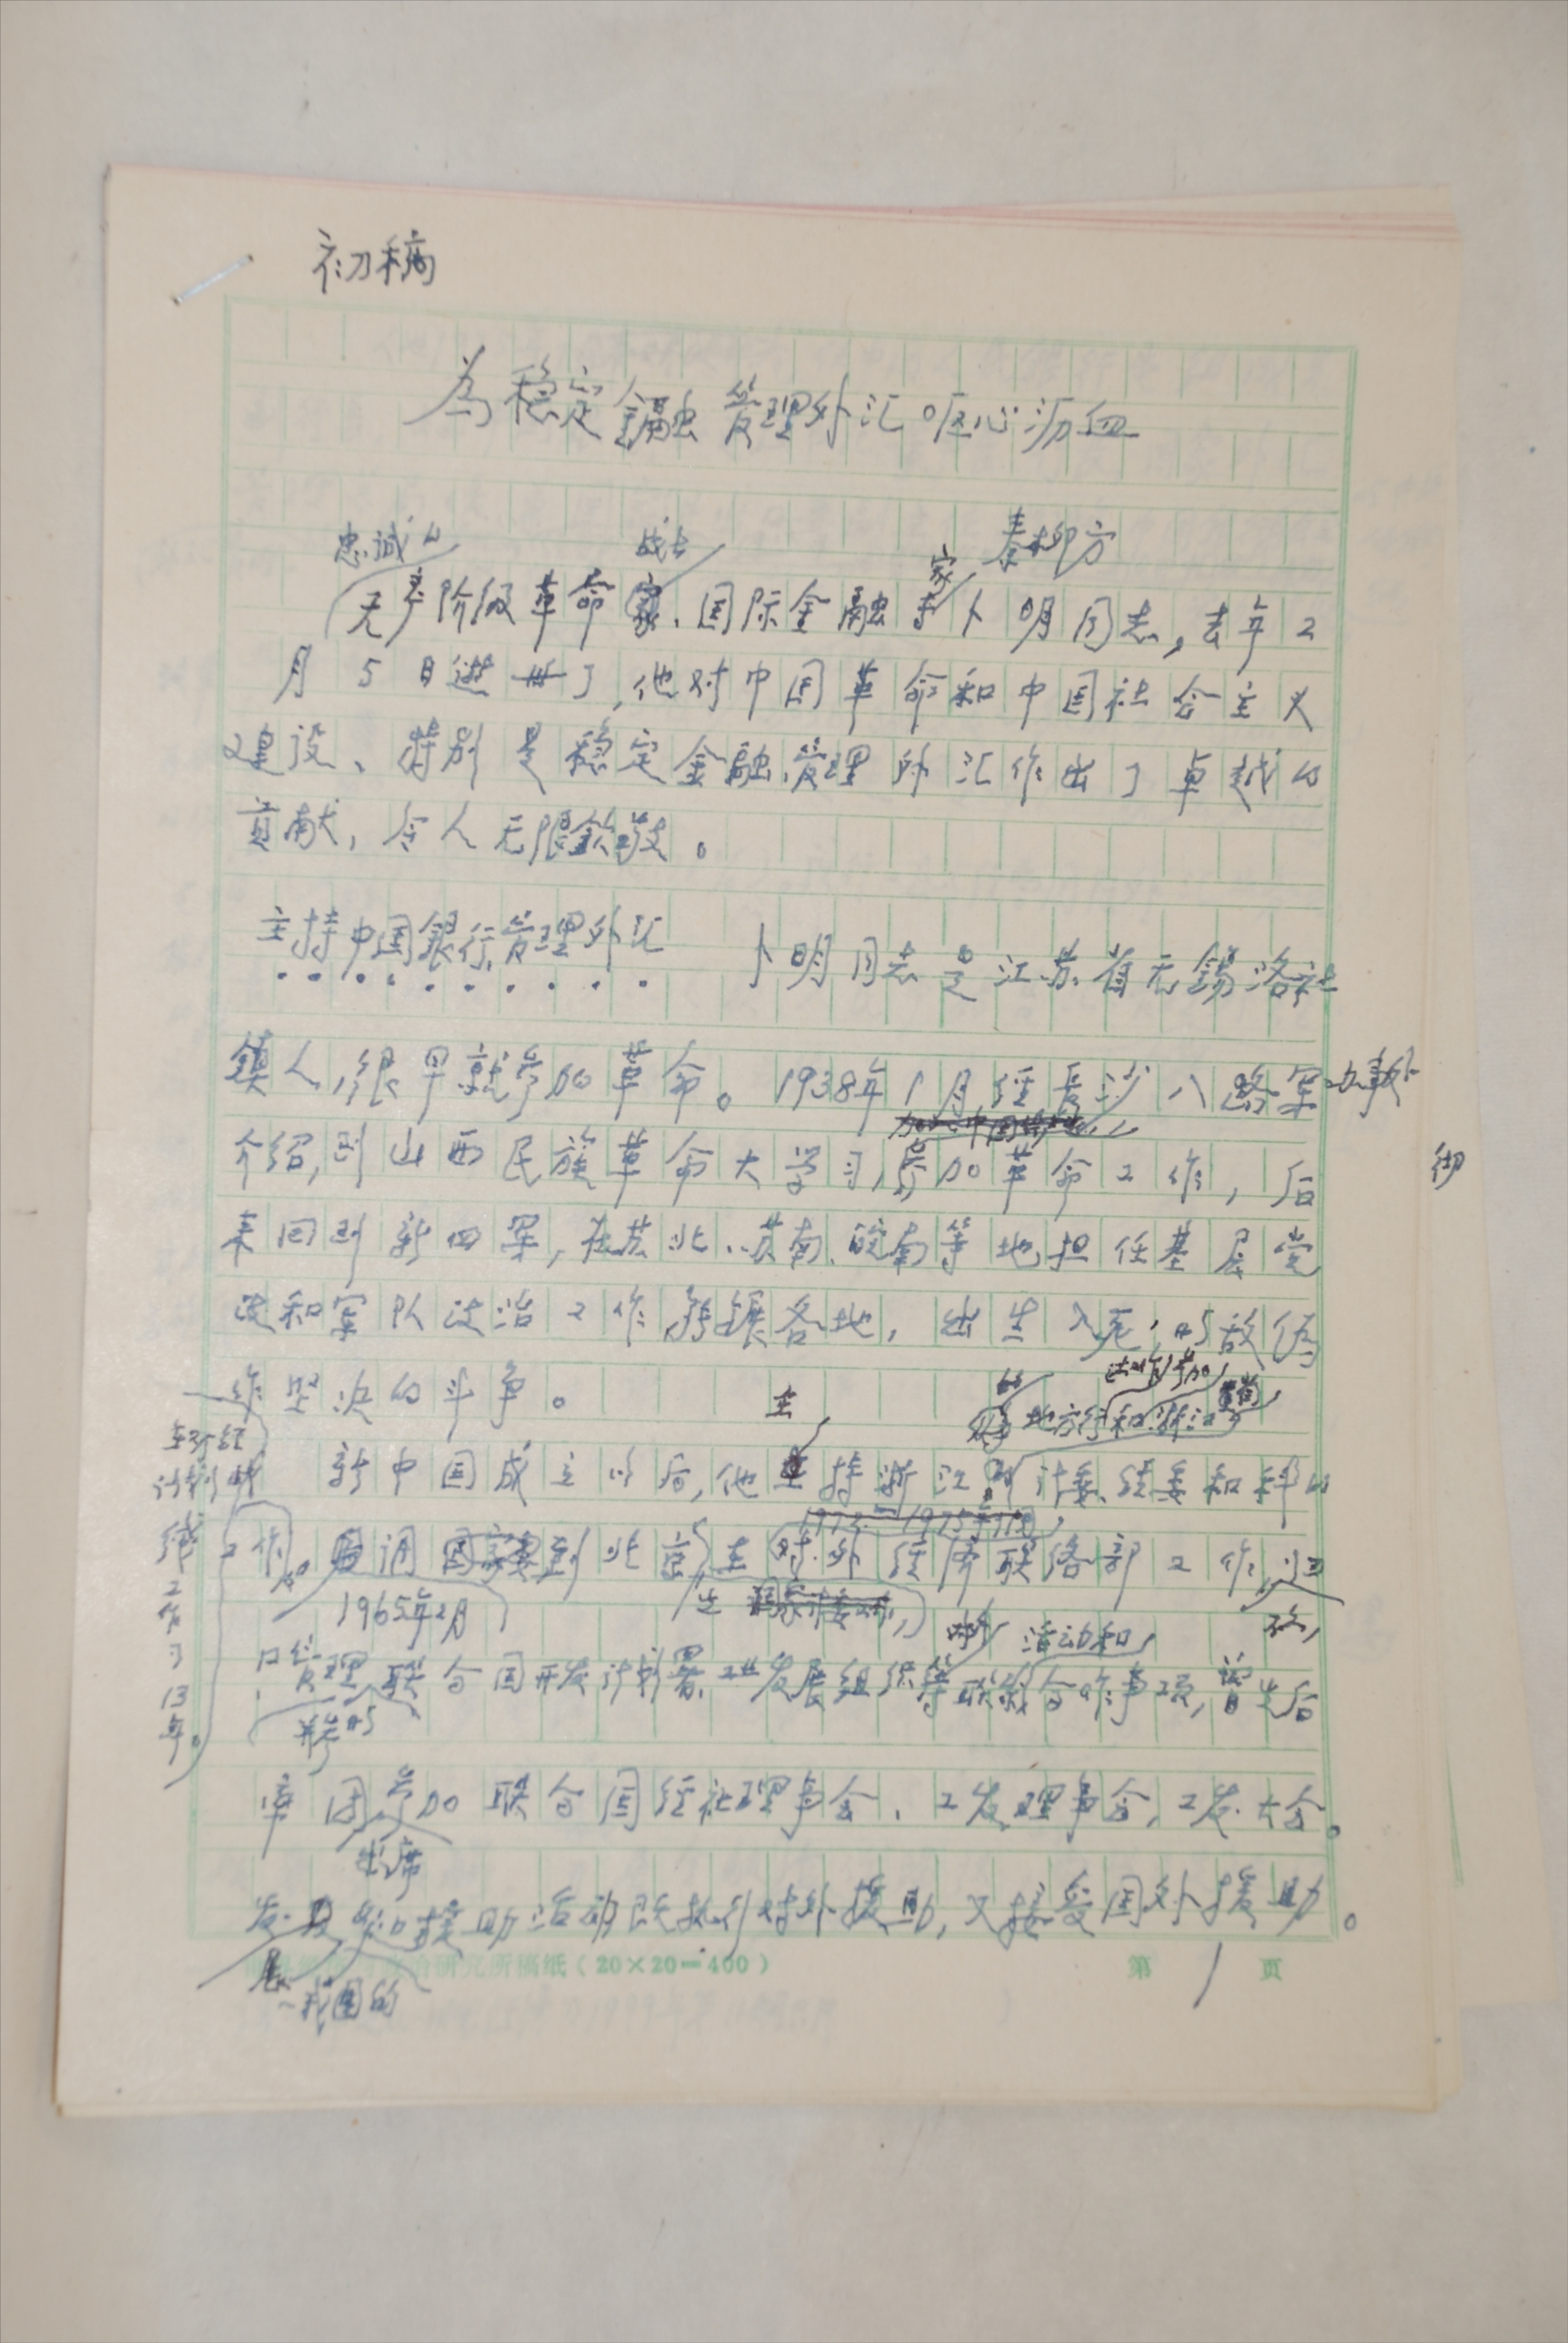 初稿
为稳定金融管理外汇呕心沥血
秦柳方
忠诚的 战士 家
无产阶级革命家、国际金融专卜明同志,去年2
月5日逝世了,他对中国革命和中国社会主义
建设、特别是稳定金融、管理外汇作出了卓越的
贡献,令人无限钦敬。
主持中国银行、管理外汇 卜明同志是江苏省无锡洛社
镇人,很早就参加革命。1938年1月经长沙八路军办事处
介绍,到山西民族革命大学学习,参加革命工作,后
来回到新四军,在苏北、苏南、皖南等地担任基层党
政和军队政治工作,转辗各地,出生入死,与敌伪
作坚决的斗争。
主 地方行和浙江
新中国成立以后,他主持浙江计委、经委和科的
1973 1975年
工作。后调国家委到北京,在对外经济联络部工作,
1965年2月
战线工作了13年。
活动和
口管理联合国开发计划署、工业发展组织等联络合作事项,曾先后
并参与
率团参加联合国经社理事会、工发理事会,工发大会。
出席
发展和援助活动既执行对外援助,又接受国外援助。
展 我国的
研究所稿纸(20×20=400) 第1页